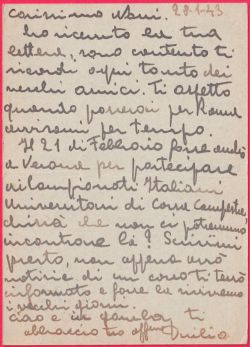 28-1-43
carissimo
ho ricevuto la tua
lettera, sono contento ti
ricordi ogni tanto dei
vecchi amici. Ti aspetto
quando passerai per Roma
avvisami per tempo.
Il 21 di Febbraio forse andrò
a Verona per partecipare
ai Campionati Italiani
Universitari di Corsa Campestre,
chissà che non ci potremmo
incontrare là? Scrivimi
presto, non appena avrò
notizie di un corso ti terrò
informato e forse
i vecchi giorni.
ciao e in gamba, ti
abbraccio tuo